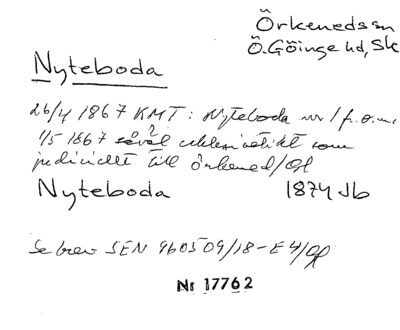 Örkeneds sn
Ö. Göinge hd, Sk
Nyteboda
26/4 1867 KMT: Nyteboda nr 1 fr.o.m.
1/5 1867 såväl ecklesiastikt som
judiciellt till Örkened/Gf
Nyteboda 1874 Jb
Se brev SEN 960509/18-E4/Gf
Nr 17762